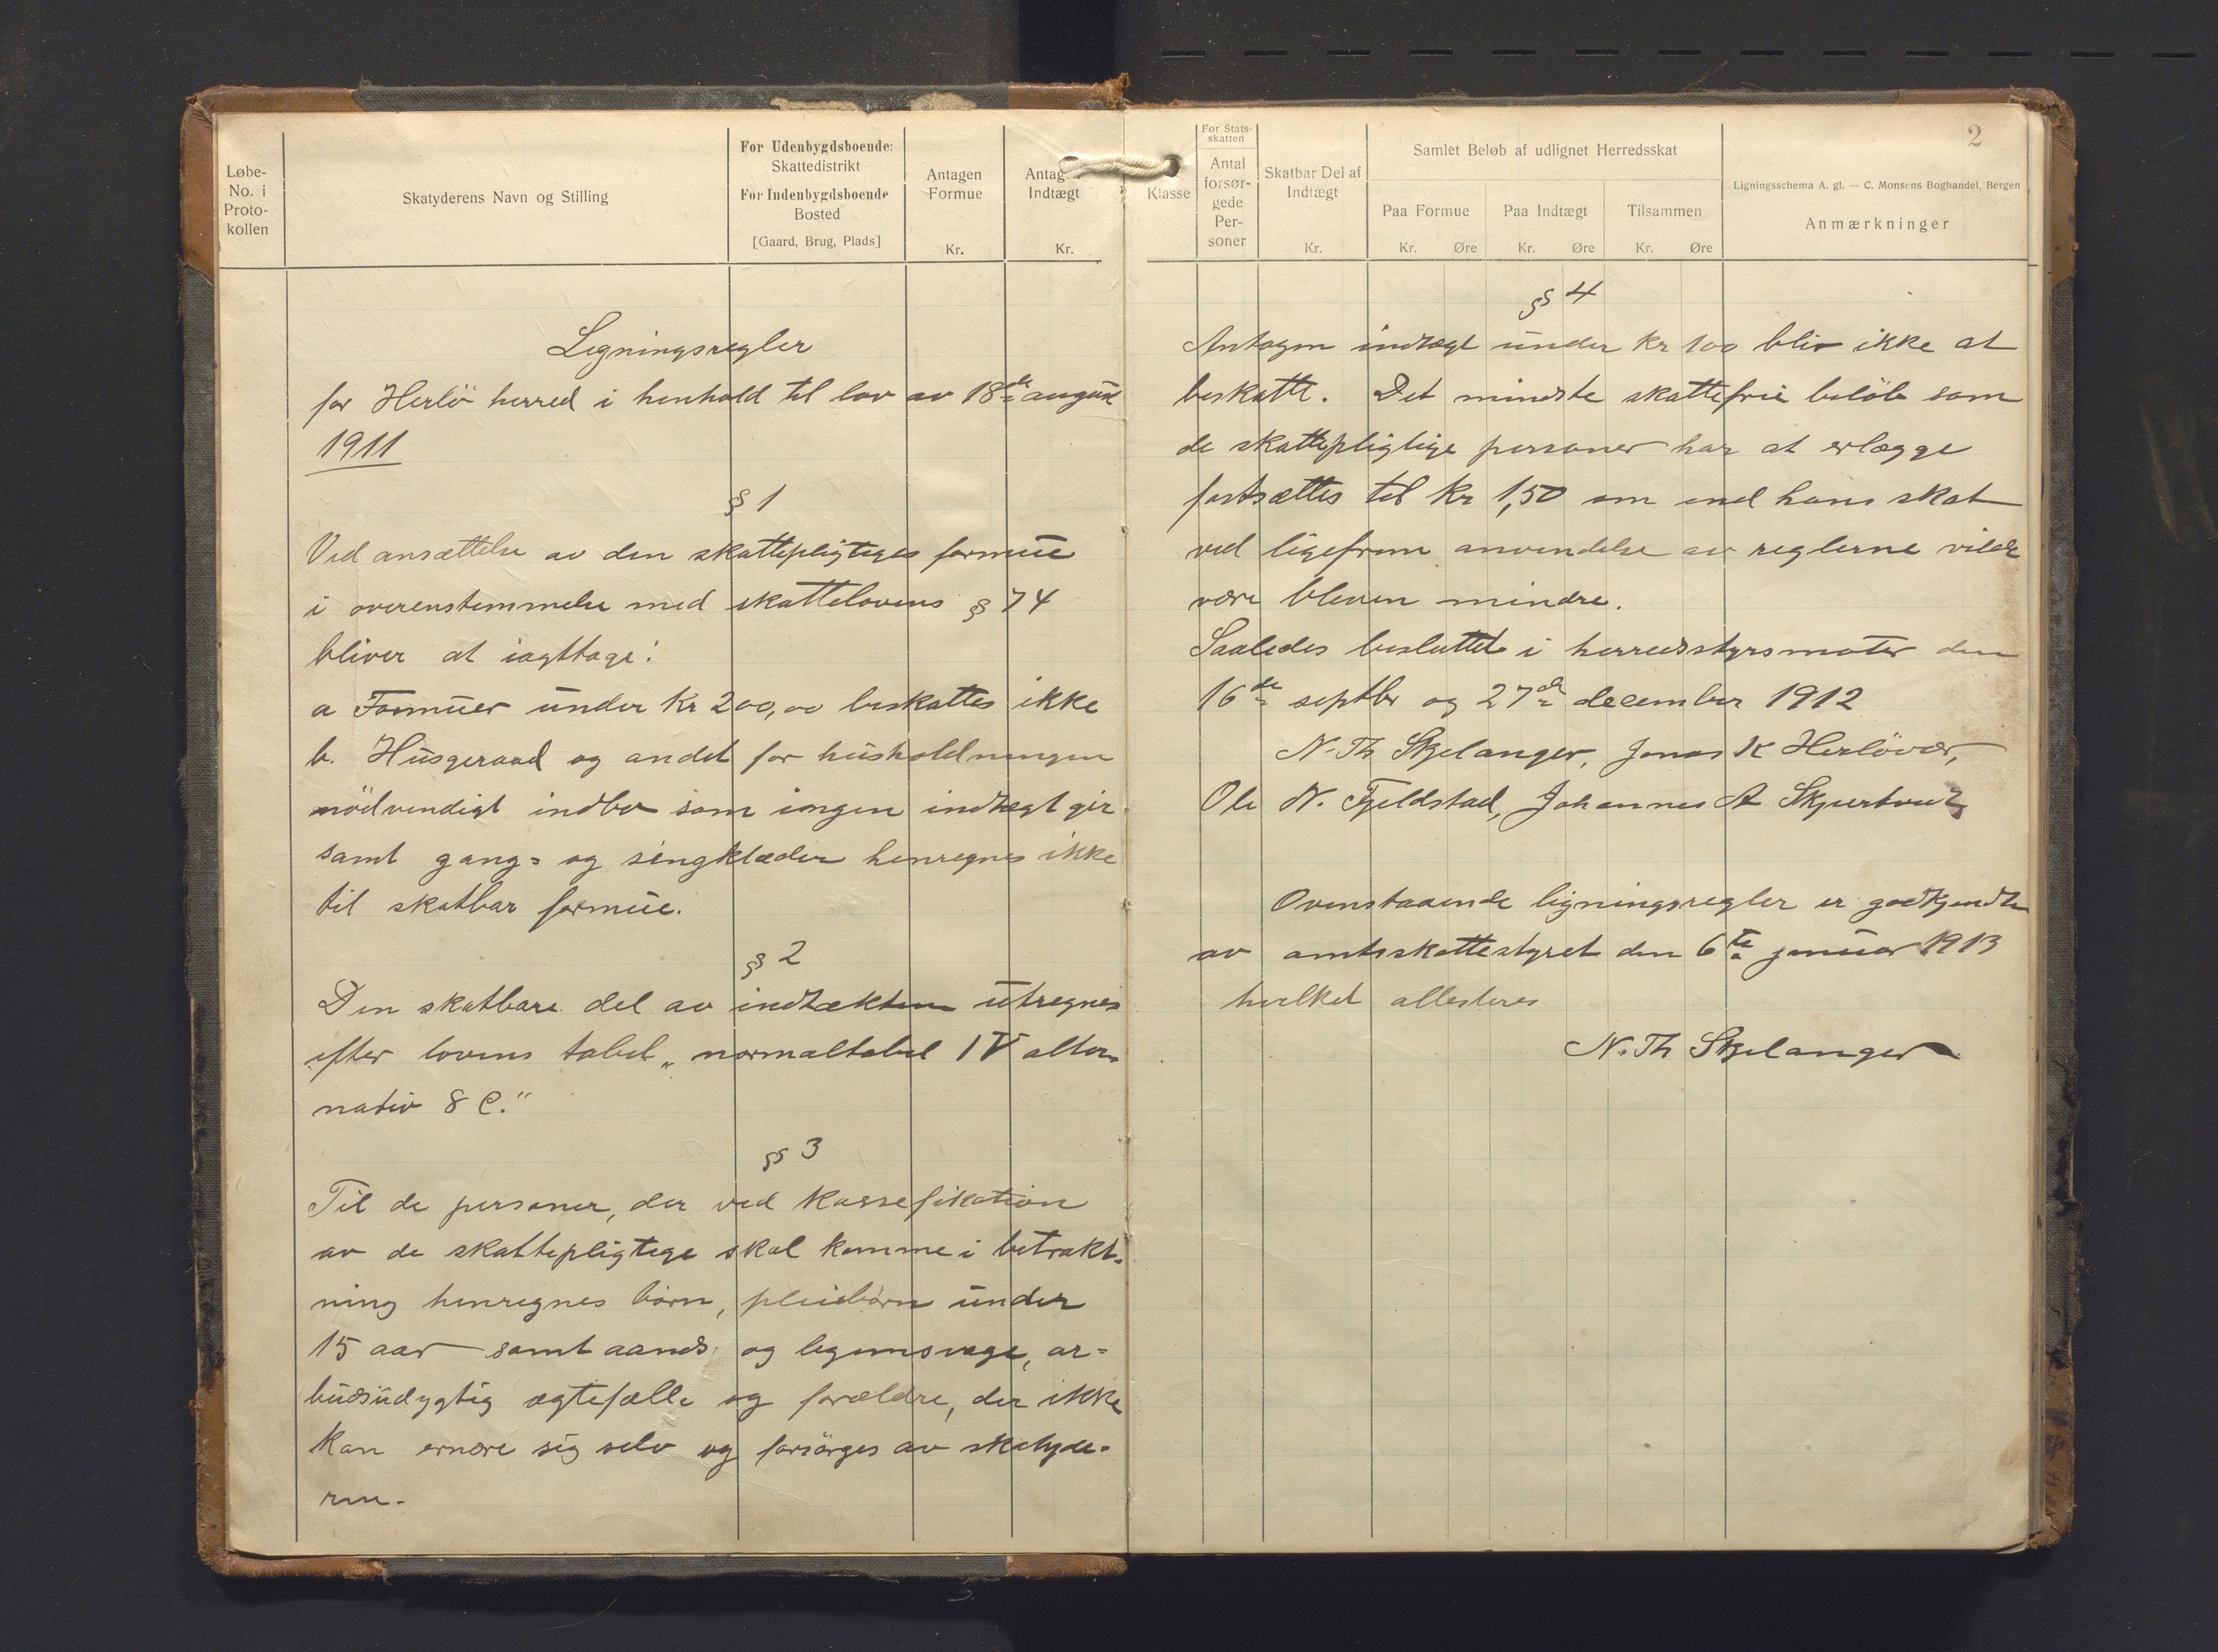 Løbe-
No. i
Proto-
kollen
Skatyderens Navn og Stilling
For Udenbygdsboende:
Skattedistrikt
For Indenbygdsboende
Bosted
[Gaard, Brug, Plads]
Antagen
Formue
Kr.
Antag
Indtægt
Kr.
Ligningsregler
for Herlö herred i henhold til lov av 18de august
1911
§ 1
Ved ansættelse av den skattepligtiges formue
i overenstemmelse med skattelovens § 74
bliver at iagttage:
a Formuer under Kr 200,00 beskattes ikke
b. Husgeraad og andet for husholdningen
nödvendigt indbo som ingen indtægt gir
samt gang= og sengklæder henregnes ikke
til skatbar formue.
§ 2
Den skatbare del av indtækten utregnes
efter lovens tabel „normaltabel IV alter-
nativ 8 C."
§ 3
Til de personer, der ved Kassefikation
av de skattepligtige skal komme i betrakt-
ning henregnes börn, pleiebörn under
15 aar samt aands- og legemsvage, ar=
beidsudygtig ægtefælle og forældre, der ikke
kan ernære sig selv og forsörges av skatyde-
ren.
Klasse
For Stats-
skatten
Antal
forsør-
gede
Per-
soner
Skatbar Del af
Indtægt
Kr.
Samlet Beløb af udlignet Herredsskat
Paa Formue
Kr. Øre
Paa Indtægt
Kr. Øre
Tilsammen
Kr. Øre
2
Ligningsschema A. gl. — C. Monsens Boghandel, Bergen
Anmærkninger
§ 4
Antagen indtægt under Kr 100 blir ikke at
beskatte. Det mindste skattefrie belöb som
de skattepligtige personer har at erlægge
fastsættes til Kr 1,50 om end hans skat
ved ligefrem anvendelse av reglerne vilde
være bleven mindre.
Saaledes besluttet i herredsstyrsmöter den
16de septbr og 27de december 1912
N. Th Skjelanger, Jonas K Herlövær,
Ole N. Fjeldstad, Johannes A
Ovenstaaende ligningsregler er godkjendte
av amtsskattestyret den 6te januar 1913
hvilket attesteres
N. Th Skjelanger